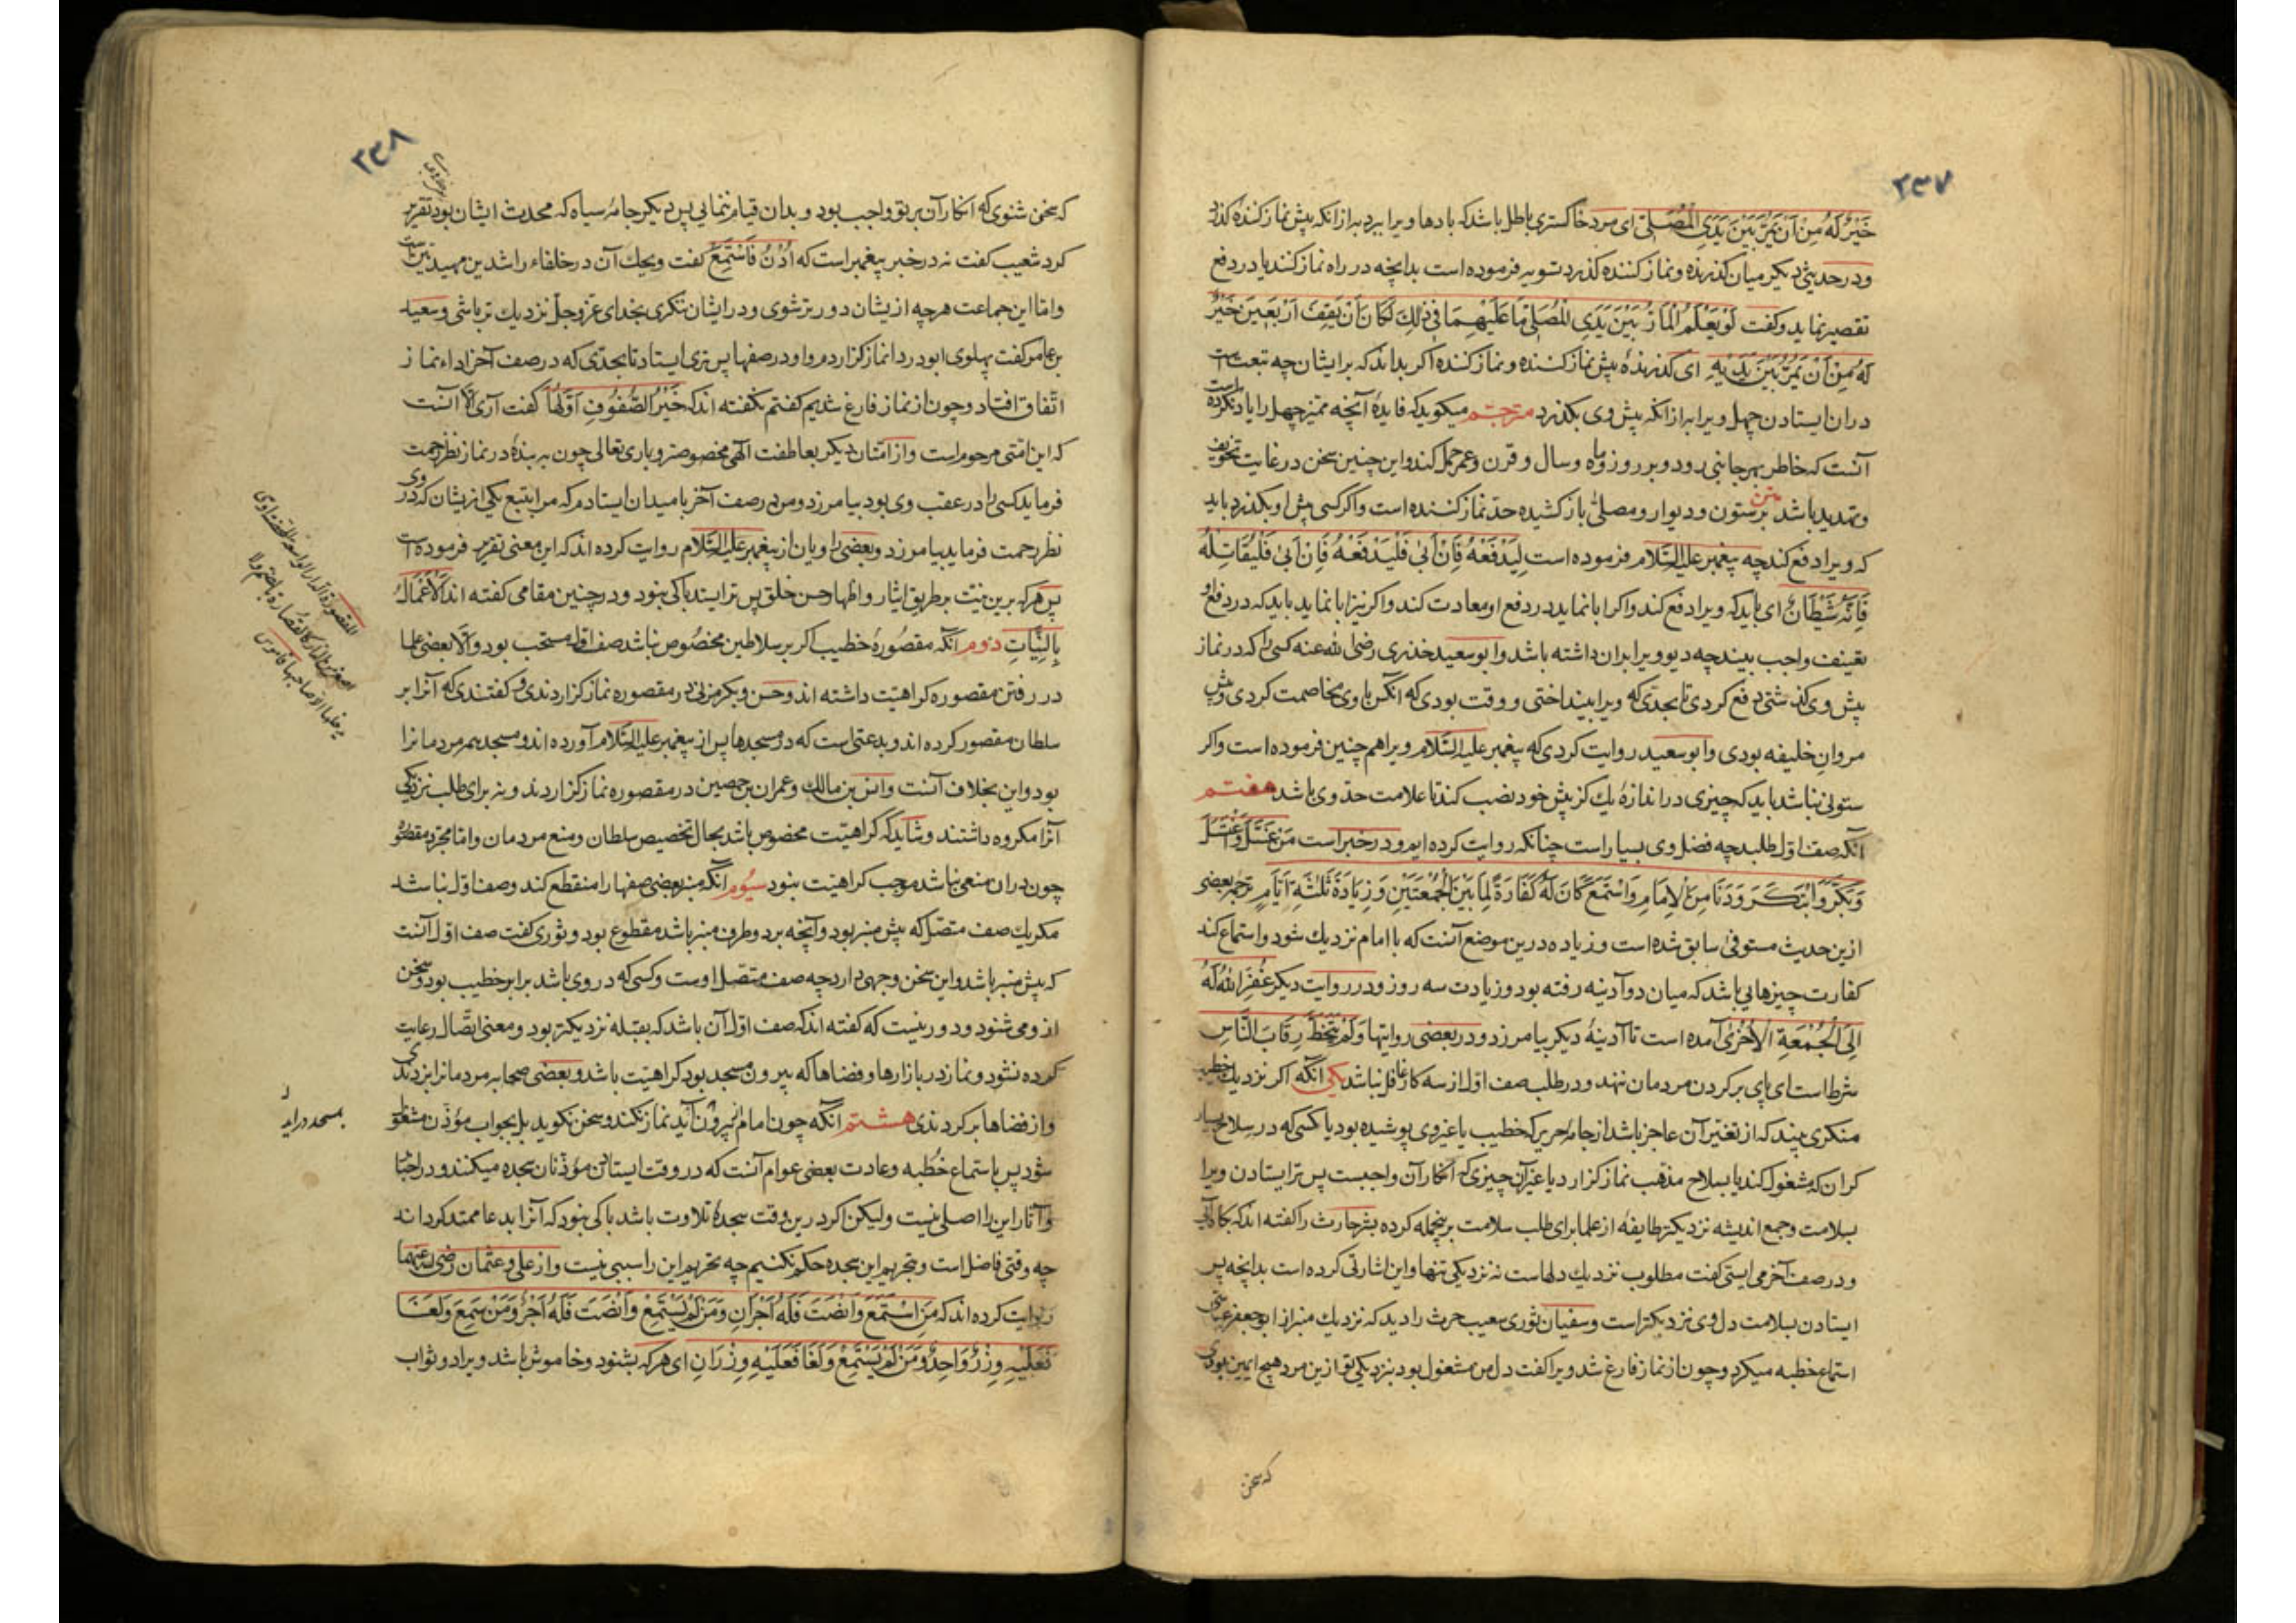 ۲۳۷
خَيْرٌ لَهُ مِنْ أَنْ يَمُرَّ بَيْنَ يَدَيِ الْمُصَلِّي ای مرد خاکستری باطل باشد که بادها ویرا ببرد به از انکه پیش نماز کننده کذرد
ودر حدیثی دیکر میان کذرنده ونماز کننده کذرد تسویه فرموده است بدانچه در راه نماز کند یا در دفع
تقصیر نماید وکفت لَوْ يَعْلَمُ الْمَارُّ بَيْنَ يَدَيِ الْمُصَلِّي مَا عَلَيْهِمَا فِي ذٰلِكَ لَكَانَ أَنْ يَقِفَ أَرْبَعِينَ خَيْرٌ
لَهُ مِنْ أَنْ يَمُرَّ بَيْنَ يَدَيْهِ ای کذرنده پیش نماز کننده ونماز کننده اکر بداند که برایشان چه تبعت است
دران ایستادن چهل ویرا به از انکه پیش وی بکذرد مترجم میکوید که فایدهٔ آنچه ممیز چهل را یاد نکرده است
آنست که خاطر بهر جانبی رود وبر روز وماه وسال وقرن وعمر حمل کند واین چنین سخن در غایت تخویف
وتهدید باشد متن ستون ودیوار ومصلّی باز کشیده حدّ نماز کننده است واکر کسی پیش او بکذرد باید
که ویرا دفع کند چه پیغمبر علیه السّلام فرموده است لِيَدْفَعْهُ فَإِنْ أَبٰى فَلْيَدْفَعْهُ فَإِنْ أَبٰى فَلْيُقَاتِلْهُ
فَإِنَّهُ شَيْطَانٌ ای باید که ویرا دفع کند واکر ابا نماید در دفع او معاودت کند واکر نیز ابا نماید باید که در دفع او
تعنیف واجب بیند چه دیو ویرا بران داشته باشد وابو سعید خدری رضی الله عنه کسی را که در نماز
پیش وی کذشتی دفع کردی تا بحدّی که ویرا بینداختی ووقت بودی که آنکس با وی مخاصمت کردی وپیش
مروان خلیفه بودی وابو سعید روایت کردی که پیغمبر علیه السّلام ویرا هم چنین فرموده است واکر
ستونی نباشد باید که چیزی در اندازهٔ یك کز پیش خود نصب کند تا علامت حدّ وی باشد هفتم
آنکه صف اوّل طلبد چه فضل وی بسیار است چنانکه روایت کرده ایم ودر خبر است مَنْ غَسَّلَ وَاغْتَسَلَ
وَبَكَّرَ وَابْتَكَرَ وَدَنَا مِنَ الْإِمَامِ وَاسْتَمَعَ كَانَ لَهُ كَفَّارَةً لِمَا بَيْنَ الْجُمُعَتَيْنِ وَزِيَادَةَ ثَلٰثَةِ أَيَّامٍ ترجمه بعضی
ازین حدیث مستوفی سابق شده است وزیاده درین موضع آنست که با امام نزدیك شود واستماع کند
کفارت چیزهایی باشد که میان دو آدینه رفته بود وزیادت سه روز ودر روایت دیکر غَفَرَ اللّٰهُ لَهُ
إِلَى الْجُمُعَةِ الْأُخْرٰى آمده است تا آدینهٔ دیکر بیامرزد ودر بعضی روایتها وَلَمْ يَتَخَطَّ رِقَابَ النَّاسِ
شرط است ای پای بر کردن مردمان ننهد ودر طلب صف اوّل از سه کار غافل نباشد یکی آنکه اکر نزدیك خطیب
منکری بیند که از تغییر آن عاجز باشد از جامهٔ حریر که خطیب یا غیر وی پوشیده بود یا کسی که در سلاح بسیار
کران که مشغول کند یا بسلاح مذهب نماز کزارد یا غیر آن چیزی که انکار آن واجبست پس تر ایستادن ویرا
بسلامت وجمع اندیشه نزدیکتر طایفهٔ از علما برای طلب سلامت برین جمله کرده بشر حارث را کفته اند که بکاه آیی
ودر صف آخر می ایستی کفت مطلوب نزدیك دلهاست نه نزدیکی تنها واین اشارتی کرده است بدانچه پس
ایستادن بسلامت دل وی نزدیکتر است وسفیان ثوری شعیب حرث را دید که نزدیك منبر از ابو جعفر
استماع خطبه میکرد وچون از نماز فارغ شد ویرا کفت دل من مشغول بود بنزدیکی تو ازین مرد هیچ ایمن بودی
که سخن
۲۳۸
که سخن شنوی که انکار آن بر تو واجب بود وبدان قیام ننمایی پس دیکر جامهٔ سیاه که محدث ایشان بود تقریر
کرد شعیب کفت نه در خبر پیغمبر است که اُدْنُ فَاسْتَمِعْ کفت ویحك آن در خلفاء راشدین مهدیین است
واما این جماعت هرچه از یشان دورتر شوی ودر ایشان ننکری بخدای عزّ وجلّ نزدیك تر باشی وسعید
بن عامر کفت پهلوی ابو دردا نماز کزاردم واو در صفها پس تری ایستاد تا بحدّی که در صف آخر اداء نماز
اتّفاق افتاد وچون از نماز فارغ شدیم کفتم نکفته اند که خَيْرُ الصُّفُوفِ أَوَّلُهَا کفت آری الّا آنست
که این امّتی مرحوم است واز امّتان دیکر بعاطفت الٓهی مخصوص وباری تعالی چون به بندهٔ در نماز نظر رحمت
فرماید کسی را که در عقب وی بود بیامرزد ومن در صف آخر بامید آن ایستادم که مرا بتبع یکی از یشان که در وی
نظر رحمت فرماید بیامرزد وبعضی راویان از پیغمبر علیه السّلام روایت کرده اند که این معنی تقریر فرموده است
پس هرکه برین نیّت بر طریق ایثار واظهار حسن خلق پس تر ایستد باکی نبود ودر چنین مقامی کفته اند اَلْأَعْمَالُ
بِالنِّيَّاتِ دوم آنکه مقصورهٔ خطیب اکر بر سلاطین مخصوص نباشد صف اوّل مستحب بود والّا بعضی علما
در رفتن مقصوره کراهیّت داشته اند وحسن وبکر مزنی در مقصوره نماز کزاردندی وکفتندی که آنرا بر
سلطان مقصور کرده اند وبدعتی است که در مسجدها پس از پیغمبر علیه السّلام آورده اند ومسجد همه مردمانرا
بود واین بخلاف آنست وانس بن مالك وعمران بن حصین در مقصوره نماز کزاردند ونه برای طلب نزدیکی
آنرا مکروه داشتند وشاید که کراهیّت مخصوص باشد بحال تخصیص سلطان ومنع مردمان واما مجرّد مقصوره
چون دران منعی نباشد موجب کراهیّت نبود سیوم آنکه منبر بعضی صفها را منقطع کند وصف اوّل نباشد
مکر یك صف متّصل که پیش منبر بود وآنچه بر دو طرف منبر باشد مقطوع بود وثوری کفت صف اوّل آنست
که پیش منبر باشد واین سخن وجهی دارد چه صف متّصل اوست وکسی که در وی باشد برابر خطیب بود وسخن
از ومی شنود ودور نیست که کفته اند که صف اوّل آن باشد که بقبله نزدیکتر بود ومعنی اتّصال رعایت
کرده نشود ونماز در بازارها وفضاها که بیرون مسجد بود کراهیّت باشد وبعضی صحابه مردمانرا بزدندی
واز فضاها بر کردندی هشتم آنکه چون امام بیرون آید نماز نکند وسخن نکوید بل بجواب مؤذّن مشغول
شود پس باستماع خطبه وعادت بعضی عوام آنست که در وقت ایستادن مؤذّنان سجده میکنند ودر اخبار
وآثار این را اصلی نیست ولیکن اکر درین وقت سجدهٔ تلاوت باشد باکی نبود که آنرا بدعا ممتد کرداند
چه وقتی فاضل است وتحریم این سجده حکم نکنیم چه تحریم این را سببی نیست واز علی وعثمان رضی الله عنهما
روایت کرده اند که مَنِ اسْتَمَعَ وَأَنْصَتَ فَلَهُ أَجْرَانِ وَمَنْ لَمْ يَسْتَمِعْ وَأَنْصَتَ فَلَهُ أَجْرٌ وَمَنْ سَمِعَ وَلَغَا
فَعَلَيْهِ وِزْرٌ وَاحِدٌ وَمَنْ لَمْ يَسْتَمِعْ وَلَغَا فَعَلَيْهِ وِزْرَانِ ای هرکه بشنود وخاموش باشد ویرا دو ثواب
المقصورة الدار الواسعة المحصنة او
هی اصغر من الدار کالقصارة بالضم ولا
یدخلها الا صاحبها قاموس
بمسجد دراید